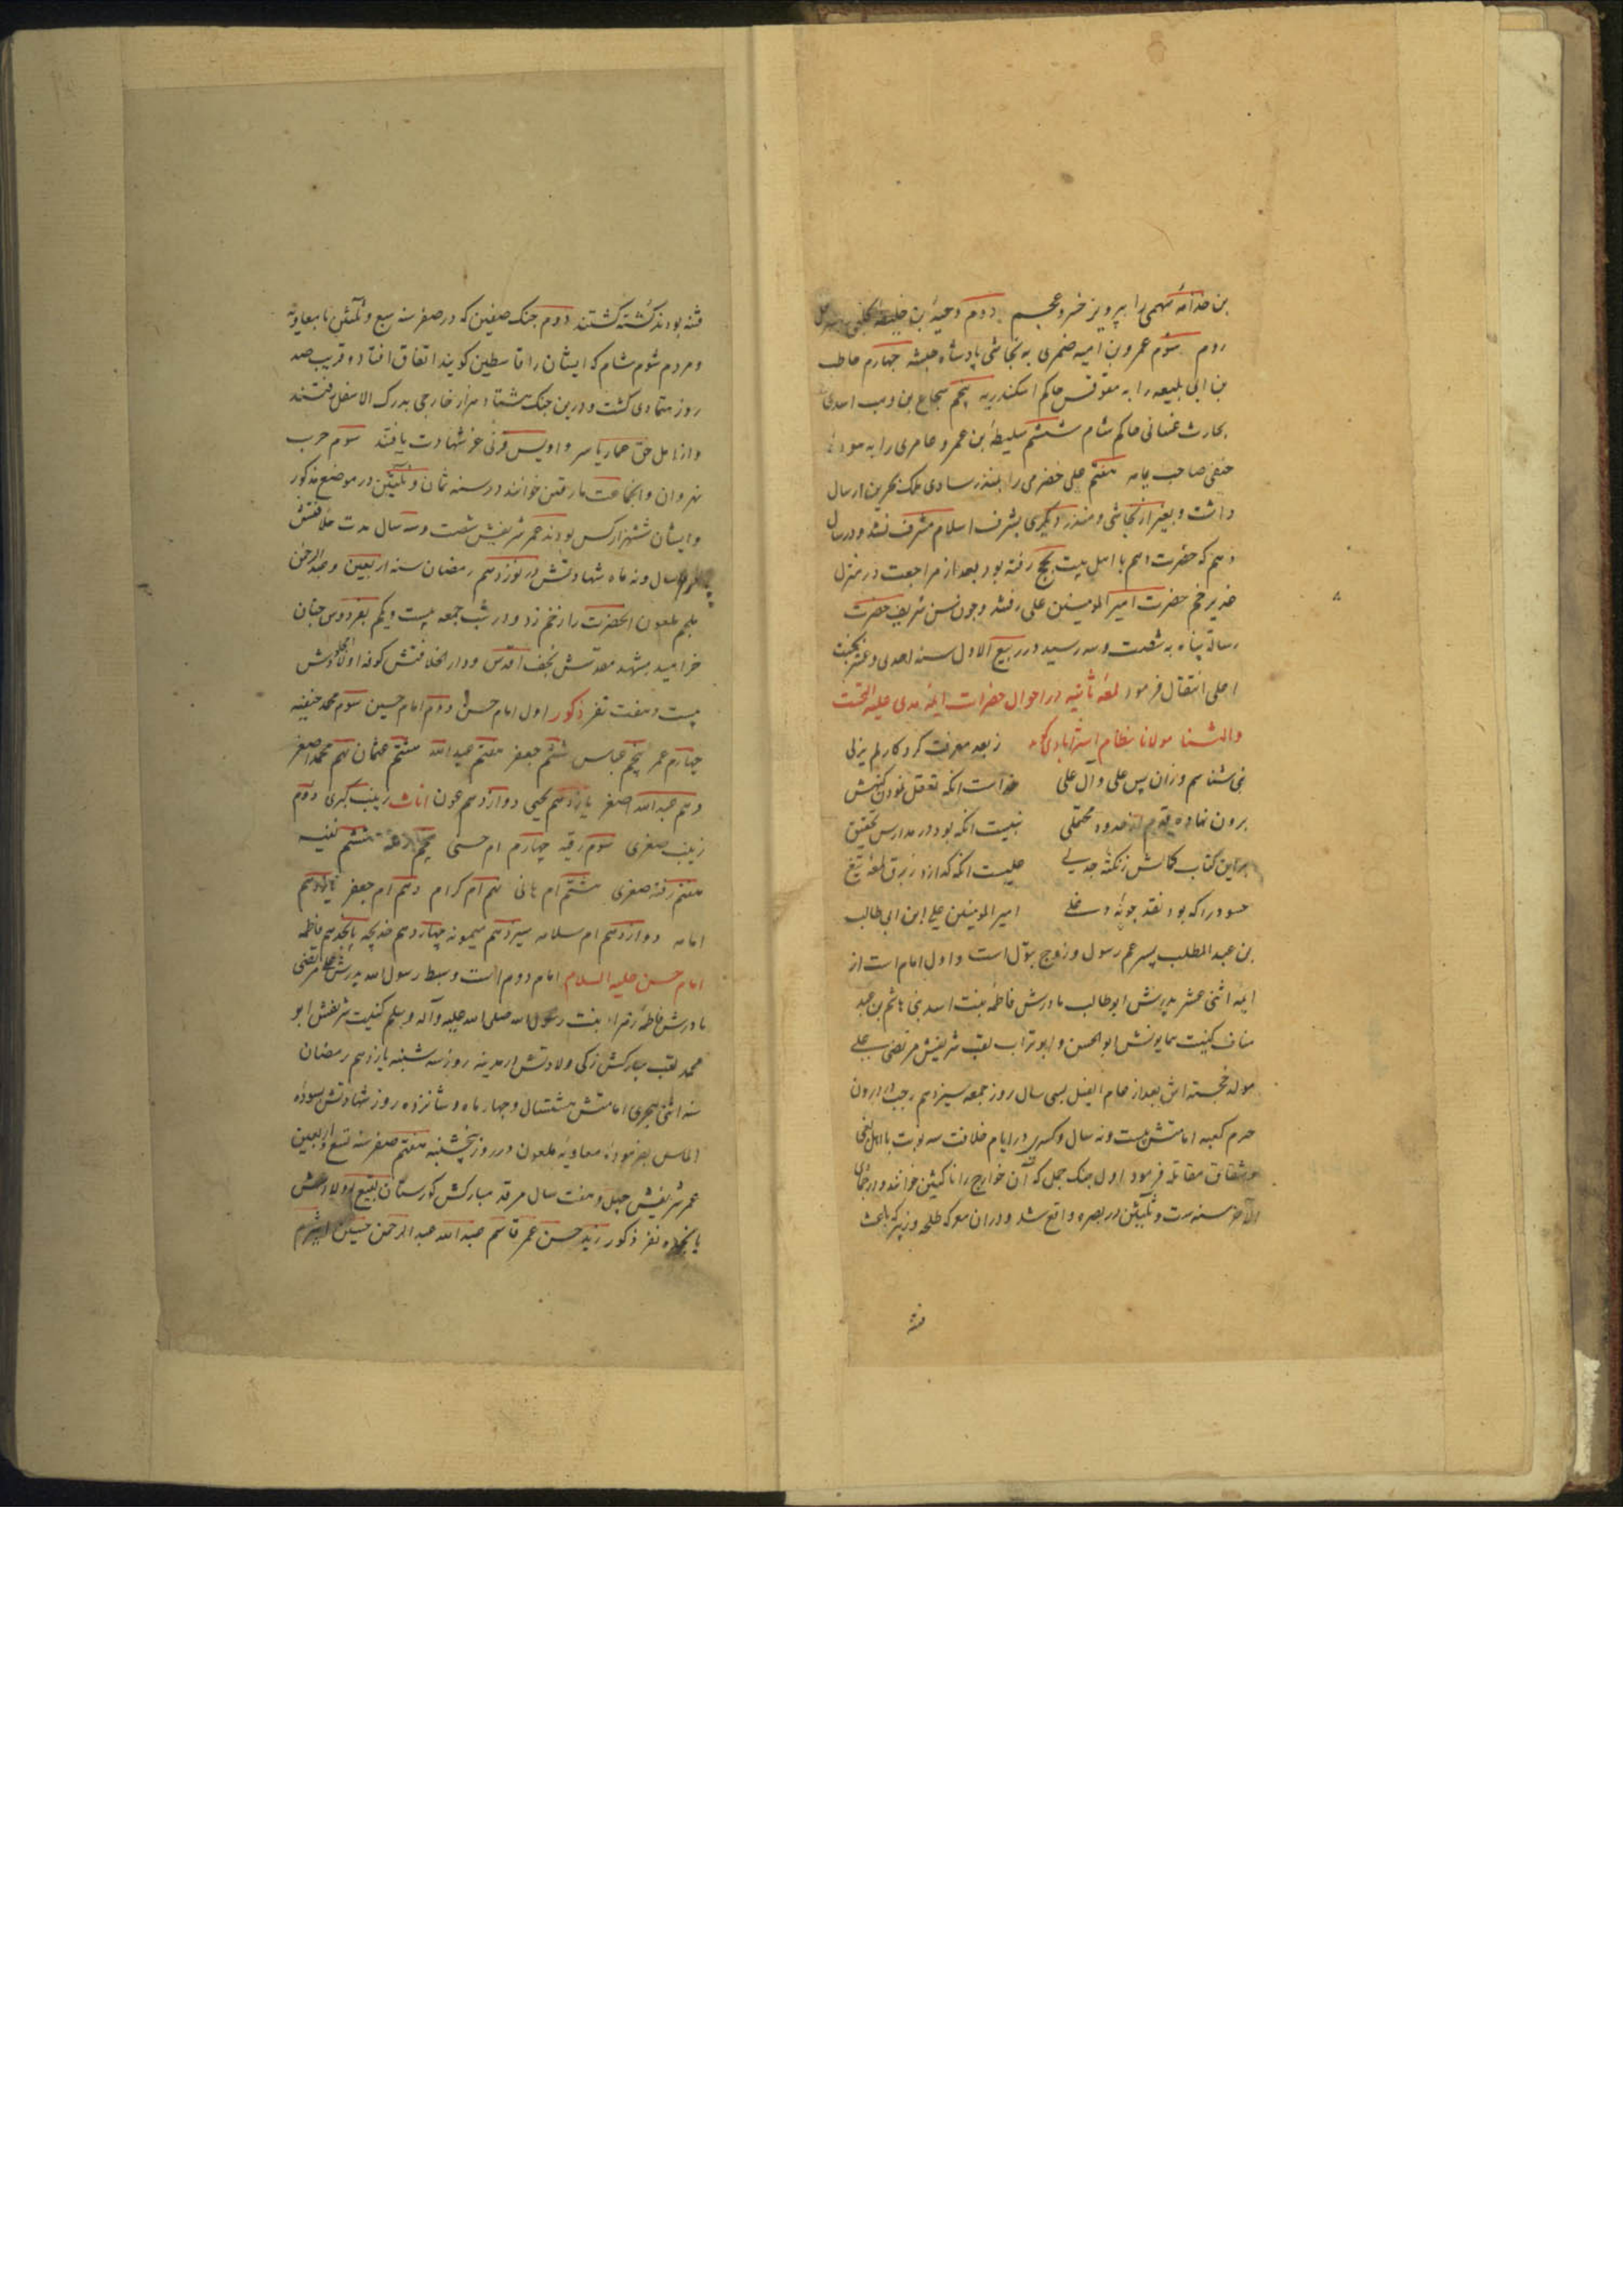 بن حذافهٔ سهمی را بپرویز خسرو عجم دوم دحیهٔ بن خلیفهٔ کلبی
روم سوم عمرو بن امیه ضمری به نجاشی پادشاه حبشه چهارم حاطب
بن ابی بلیعه را به مقوقس حاکم اسکندریه پنجم شجاع بن وهب اسدی
بحارث غسانی حاکم شام ششم سلیط بن عمرو عامری را به هودهٔ
حنفی صاحب یمامه هفتم علی حضرمی را بمنذر ساوی ملک بحرین ارسال
داشت و بغیر از نجاشی و منذر دیگری بشرف اسلام مشرف نشد و در سال
دهم که حضرت اسم با اهل بیت بحج رفته بود بعد از مراجعت در منزل
غدیر خم حضرت امیر المومنین علی رفتند و چون سن شریف حضرت
رسالة پناه به شصت و سه رسید در ربیع الاول سنه احدی و عشر بجنت
اعلی انتقال فرمود لمعهٔ ثانیه در احوال حضرات ایمهٔ هدی علیه التحیت
والثنا مولانا نظام استرابادی گوید ز بعد معرفت کردکار لم یزلی
نمی شناسم و زان پس علی و آل علی خداست انکه تعقل نمودن کنهش
برون نهاده قدم از حدود محتملی نبیست انکه بود در مدارس تحقیق
بر این کتاب کمالش ز نکتهٔ جدلی علیست انکه گدازد ز برق لمعهٔ تیغ
حسود را که بود نقد جونهٔ دغلی امیر المومنین علی ابن ابی طالب
بن عبد المطلب پسر عم رسول و زوج بتول است و اول امام است از
ایمهٔ اثنی عشر پدرش ابوطالب مادرش فاطمه بنت اسد بنی هاشم بن عبد
مناف کنیت همایونش ابو الحسن و ابو تراب لقب شریفش مرتضی علی
مولد خجسته اش بعد از عام الفیل بسی سال روز جمعه سیزدهم رجب در درون
حرم کعبه امامتش بیست و نه سال و کسری در ایام خلافت سه نوبت با اهل بغی
و شقاق مقاتله فرمود اول جنک جمل که آن خوارج را ناکثین خوانند و در جمادی
الآخر سنه ست و ثلثین در بصره واقع شد و دران معرکه طلحه و زبیر که باعث
فتنه
فتنه بودند کشته کشتند دوم جنک صفین که در صفر سنه سبع و ثلثین با معاویه
و مردم شوم شام که ایشان را قاسطین کویند اتفاق افتاد و قریب صد
روز متمادی کشت و درین جنک هشتاد هزار خارجی بدرک الاسفل رفتند
و از اهل حق عمار یاسر و اویس قرنی عز شهادت یافتند سوم حرب
نهروان و انجماعت مارقین خوانند در سنه ثمان و ثلثین در موضع مذکور
و ایشان ششهزار کس بودند عمر شریفش شصت و سه سال مدت خلافتش
چهار سال و نه ماه شهادتش در نوزدهم رمضان سنه اربعین و عبد الرحمن
ملجم ملعون انحضرت را زخم زد و در شب جمعه بیست و یکم بفردوس جنان
خرامید مشهد مقدسش نجف اقدس و دار الخلافتش کوفه اولاد امجادش
بیست و هفت نفر ذکور اول امام حسن دوم امام حسین سوم محمد حنیفه
چهارم عمر پنجم عباس ششم جعفر هفتم عبد الله هشتم عثمان نهم محمد اصغر
دهم عبد الله اصغر یازدهم یحیی دوازدهم عون اناث زینب کبری دوم
زینب صغری سوم رقیه چهارم ام حسنی پنجم رمله ششم نفیسه
هفتم رقیه صغری هشتم ام هانی نهم ام کرام دهم ام جعفر یازدهم
امامه دوازدهم ام سلامه سیزدهم میمونه چهاردهم خدیجه پانجدهم فاطمه
امام حسن علیه السلام امام دوم است و سبط رسول الله پدرش علی مرتضی
مادرش فاطمهٔ زهرا بنت رسول الله صلی الله علیه وآله وسلم کنیت شریفش ابو
محمد لقب مبارکش زکی ولادتش در مدینه روز سه شنبه پانزدهم رمضان
سنه اثنی هجری امامتش هشتسال و چهار ماه و شانزده روز شهادتش بسودهٔ
الماس بفرمودهٔ معاویهٔ ملعون در روز پنجشنبه هفتم صفر سنه تسع و اربعین
عمر شریفش چهل و هفت سال مرقد مبارکش کورستان بقیع اولادش
پانجده نفر ذکور زید حسن عمر قاسم عبد الله عبد الرحمن حسین اثرم